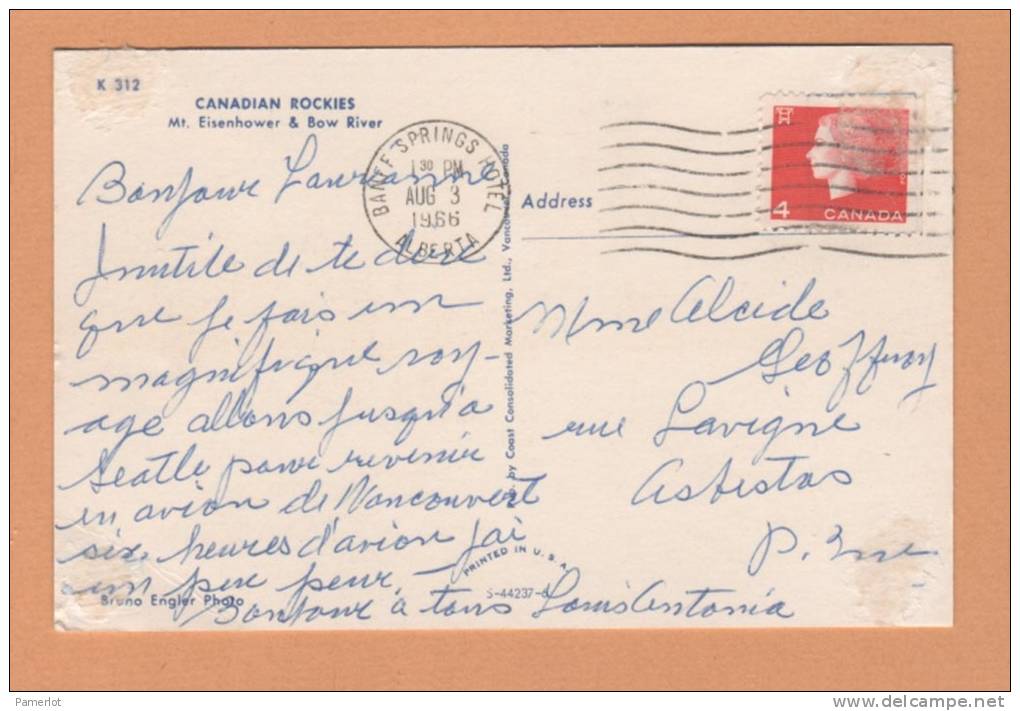 K 312
CANADIAN ROCKIES
Mt. Eisenhower & Bow River
Bonjour Laurianne
Inutile de te dire
que je fais un
magnifique voy-
age allons jusqu'à
Seatle pour revenir
en avion de Vancouvert
six heures d'avion j'ai
un peu peur -
Bonjour à tous Louis Antonia
Bruno Engler Photo
BANFF SPRINGS HOTEL
1 30 PM
AUG 3
1966
ALBERTA
by Coast Consolidated Marketing, Ltd., Vancouver, Canada
PRINTED IN U.S.A.
S-44237-
4
CANADA
Address
Mme Alcide
Geoffroy
rue Lavigne
Asbestos
P. Que
Pamerlot
www.delcampe.net